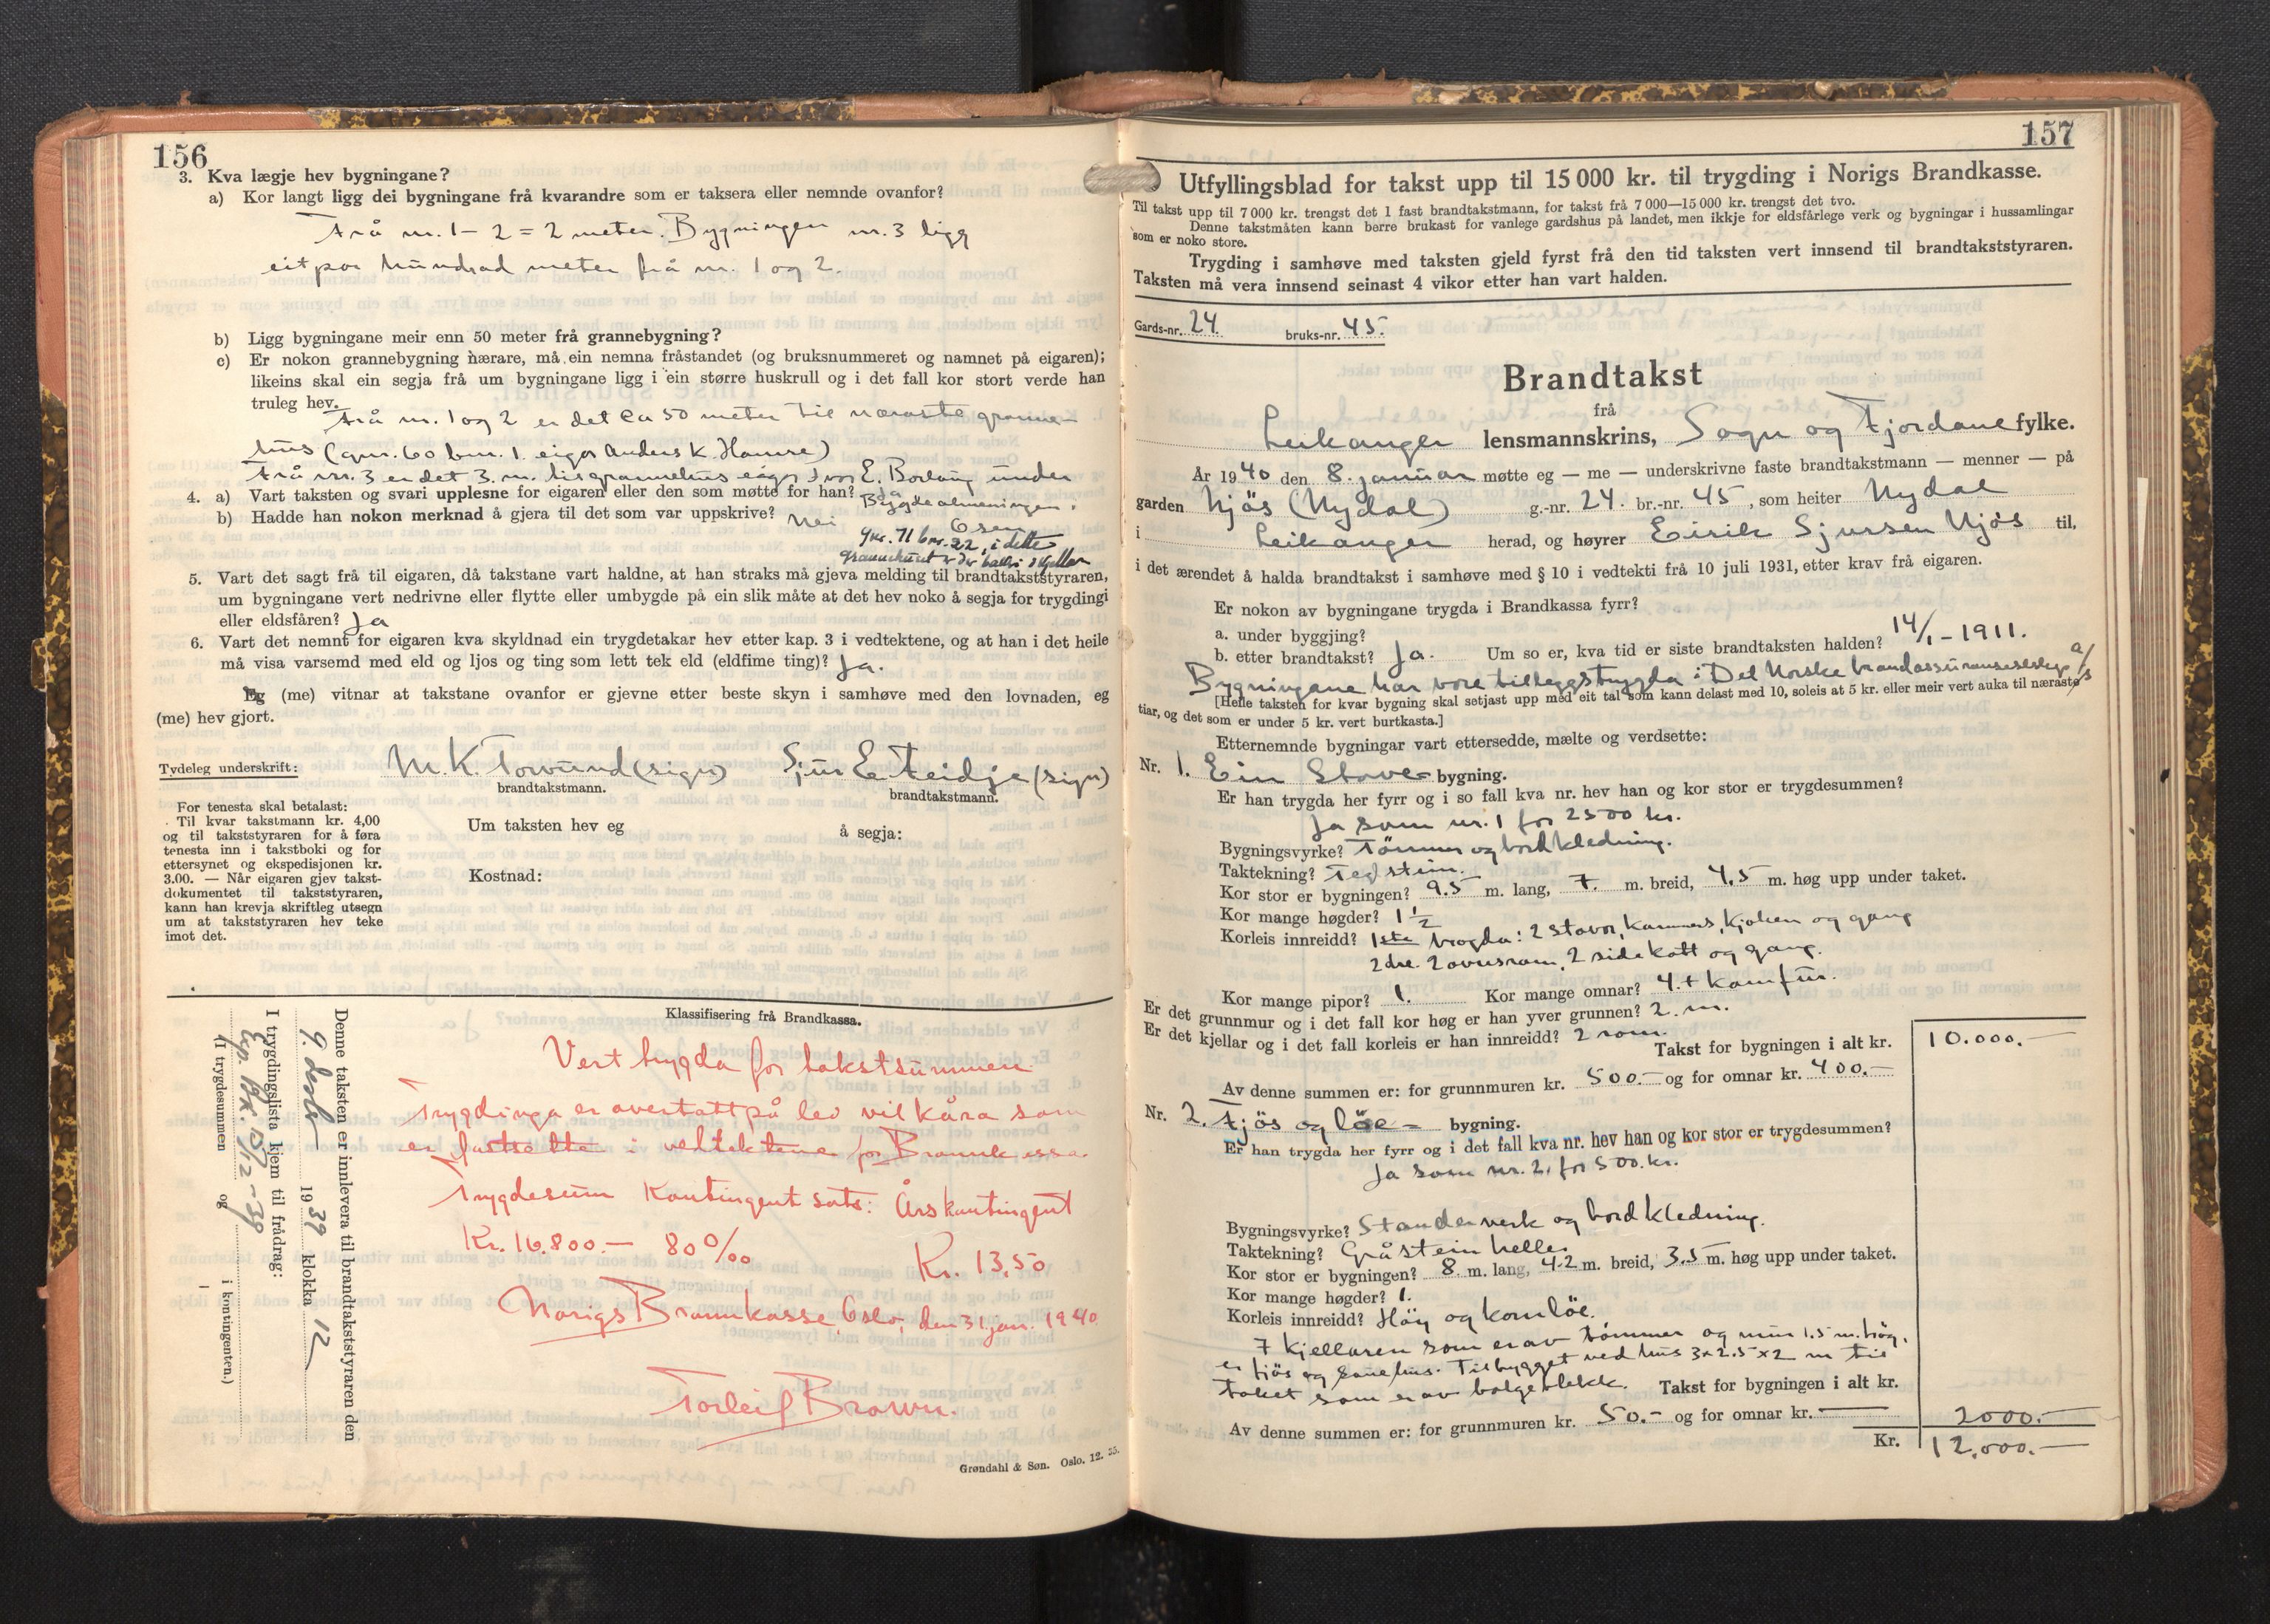 156
3. Kva lægje hev bygningane?
a) Kor langt ligg dei bygningane frå kvarandre som er taksera eller nemnde ovanfor?
Frå nr. 1 - 2 = 2 meter. Bygningen nr. 3 ligg
eit par hundrad meter frå nr. 1 og 2.
b) Ligg bygningane meir enn 50 meter frå grannebygning?
c) Er nokon grannebygning nærare, må ein nemna fråstandet (og bruksnummeret og namnet på eigaren);
likeins skal ein segja frå um bygningane ligg i ein større huskrull og i det fall kor stort verde han
truleg hev.
Frå nr. 1 og 2 er det ca 50 meter til næraste granne-
hus (gnr. 60 bnr. 1. eigar Anders K. Hamre)
Frå nr. 3 er det 3. m. til grannehus eigar Ivar E. under
4. a) Vart taksten og svari upplesne for eigaren eller den som møtte for han? Ja
Bygdealmeningen.
b) Hadde han nokon merknad å gjera til det som var uppskrive? Nei
gnr. 71 bnr. 22, i dette
grannehuset er der
5. Vart det sagt frå til eigaren, då takstane vart haldne, at han straks må gjeva melding til brandtakststyraren,
um bygningane vert nedrivne eller flytte eller umbygde på ein slik måte at det hev noko å segja for trygdingi
eller eldsfåren? Ja
6. Vart det nemnt for eigaren kva skyldnad ein trygdetakar hev etter kap. 3 i vedtektene, og at han i det heile
må visa varsemd med eld og ljos og ting som lett tek eld (eldfime ting)? Ja.
Eg (me) vitnar at takstane ovanfor er gjevne etter beste skyn i samhøve med den lovnaden, eg
(me) hev gjort.
Tydeleg underskrift: M. K. Torvund (sign) Sjur E. Feidje (sign)
brandtakstmann. brandtakstmann.
For tenesta skal betalast:
Til kvar takstmann kr. 4,00
og til takststyraren for å føra
tenesta inn i takstboki og for
ettersynet og ekspedisjonen kr.
3.00. — Når eigaren gjev takst-
dokumentet til takststyraren,
kann han krevja skriftleg utsegn
um at takststyraren hev teke
imot det.
Um taksten hev eg å segja:
Kostnad:
Klassifisering frå Brandkassa.
Vert trygda for takstsummen
Trygdinga er overtatt på dei vilkåra som
er fastsette i vedtektene for Brannkassa.
Trygdesum Kontingentsats: Årskontingent
Kr. 16.800.— 80 º/oo Kr. 13,50
Norigs Brannkasse, Oslo, den 31. jan. 1940
Torleif Brown.
Denne taksten er innlevera til brandtakststyraren den
9. desbr 1939 klokka 12
I trygdingslista kjem til frådrag:
Exp. Bk. 13/12-39
(I trygdesummen og i kontingenten.)
Grøndahl & Søn. Oslo. 12. 35.
157
Utfyllingsblad for takst upp til 15 000 kr. til trygding i Norigs Brandkasse.
Til takst upp til 7 000 kr. trengst det 1 fast brandtakstmann, for takst frå 7 000—15 000 kr. trengst det tvo.
Denne takstmåten kann berre brukast for vanlege gardshus på landet, men ikkje for eldsfårlege verk og bygningar i hussamlingar
som er noko store.
Trygding i samhøve med taksten gjeld fyrst frå den tid taksten vert innsend til brandtakststyraren.
Taksten må vera innsend seinast 4 vikor etter han vart halden.
Gards-nr. 24. bruks-nr. 45.
Brandtakst
frå
Leikanger lensmannskrins, Sogn og Fjordane fylke.
År 1940 den 8. januar møtte eg — me — underskrivne faste brandtakstmann — menner — på
garden Njøs (Nydal) g.-nr. 24. br.-nr. 45, som heiter Nydal
i Leikanger herad, og høyrer Eirik Sjursen Njøs til,
i det ærendet å halda brandtakst i samhøve med § 10 i vedtekti frå 10 juli 1931, etter krav frå eigaren.
Er nokon av bygningane trygda i Brandkassa fyrr?
a. under byggjing?
b. etter brandtakst? Ja. Um so er, kva tid er siste brandtaksten halden? 14/1 - 1911.
Bygningane har vore tilleggstrygda i Det Norske brandassuranseselskap a/s
[Heile taksten for kvar bygning skal setjast upp med eit tal som kann delast med 10, soleis at 5 kr. eller meir vert auka til næraste
tiar, og det som er under 5 kr. vert burtkasta.]
Etternemnde bygningar vart ettersedde, mælte og verdsette:
Nr. 1. Ein Stove- bygning.
Er han trygda her fyrr og i so fall kva nr. hev han og kor stor er trygdesummen?
Ja som nr. 1 for 2500 kr.
Bygningsvyrke? Tømmer og bordkledning.
Taktekning? Teglstein.
Kor stor er bygningen? 9.5 m. lang, 7. m. breid, 4.5 m. høg upp under taket.
Kor mange høgder? 1 ½
Korleis innreidd? 1ste høgda: 2 stovor, kammers, kjøken og gang
2dre. 2 oversrom, 2 sidekott og gang.
Kor mange pipor? 1. Kor mange omnar? 4. + komfur.
Er det grunnmur og i det fall kor høg er han yver grunnen? 2. m.
Er det kjellar og i det fall korleis er han innreidd? 2 rom.
Takst for bygningen i alt kr. 10.000.—
Av denne summen er: for grunnmuren kr. 500.— og for omnar kr. 400.—
Nr. 2. Fjøs og løe- bygning.
Er han trygda her fyrr og i det fall kva nr. hev han og kor stor er trygdesummen?
Ja som nr. 2, for 500. kr.
Bygningsvyrke? Standerverk og bordkledning.
Taktekning? Gråstein heller
Kor stor er bygningen? 8. m. lang, 4.2 m. breid, 3.5 m. høg upp under taket.
Kor mange høgder? 1.
Korleis innreidd? Høy og kornløe.
I kjellaren som er av tømmer og mur 1.5 m. høg,
er fjøs og sauehus. Tilbygget vedhus 3×2.5×2 m til
taket som er av bølgeblekk. Takst for bygningen i alt kr. 2000.—
Av denne summen er: for grunnmuren kr. 50.— og for omnar kr. —
Kr. 12.000.—